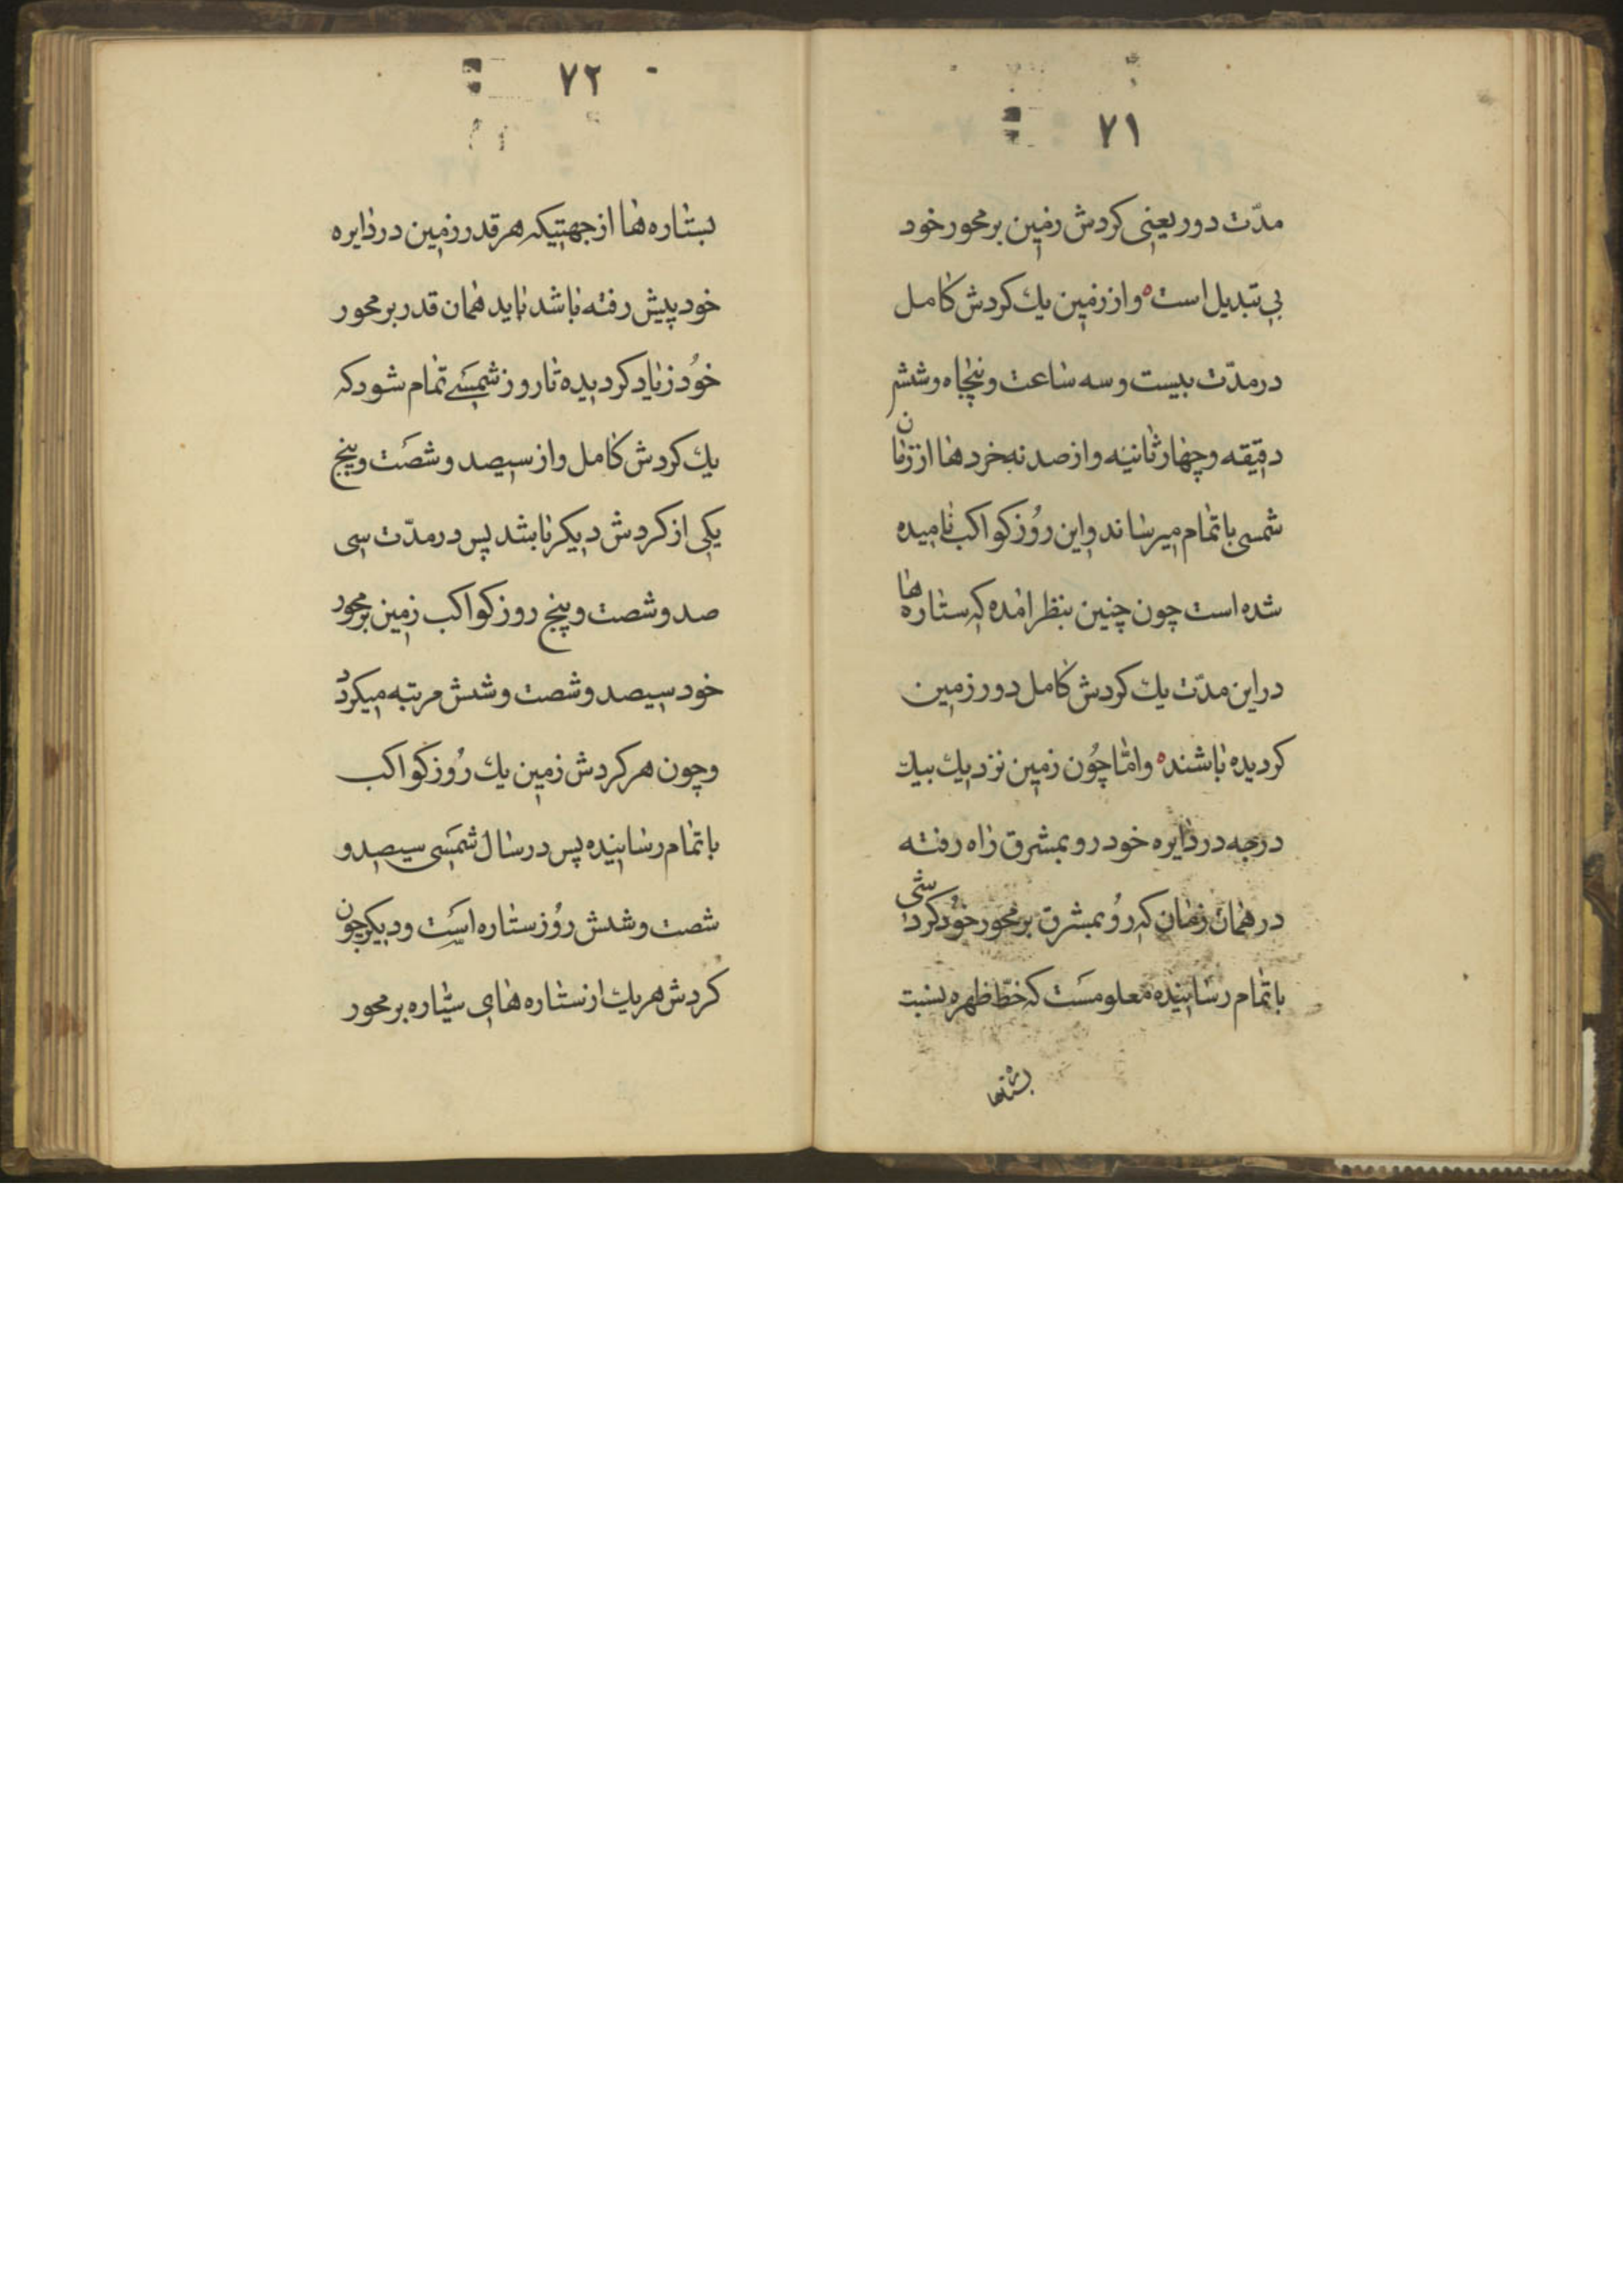 ۷۱
مدّت دور یعنی کردش زمین بر محور خود
بی تبدیل است ه و از زمین یک کردش کامل
در مدّت بیست و سه ساعت و پنجاه و شش
دقیقه و چهار ثانیه و از صد نه خردها از زمان
شمسی باتمام میرساند و این روُز کواکب نامیده
شده است چون چنین بنظر امده که ستاره ها
در این مدّت یک کردش کامل دور زمین
کردیده باشند ه و امّا چوُن زمین نزدیک بیک
درجه در دایره خود رو بمشرق راه رفته
در همان زمان که روُ بمشرق بر محور خوُد کردشی
باتمام رسانیده معلومست که خطّ ظهره بنسبت
بستارها
۷۲
بستاره ها از جهتیکه هر قدر زمین در دایره
خود پیش رفته باشد باید همان قدر بر محور
خوُد زیاد کردیده تا روز شمسے تمام شود که
یک کردش کامل و از سیصد و شصت و پنج
یکی از کردش دیکر باشد پس در مدّت سی
صد و شصت و پنج روز کواکب زمین بر محور
خود سیصد و شصت و شش مرتبه میکردد
و چون هر کردش زمین یک روُز کواکب
باتمام رسانیده پس در سال شمسی سیصد و
شصت و شش روُز ستاره است و دیکر چون
کردش هر یک از ستاره های سیّاره بر محور